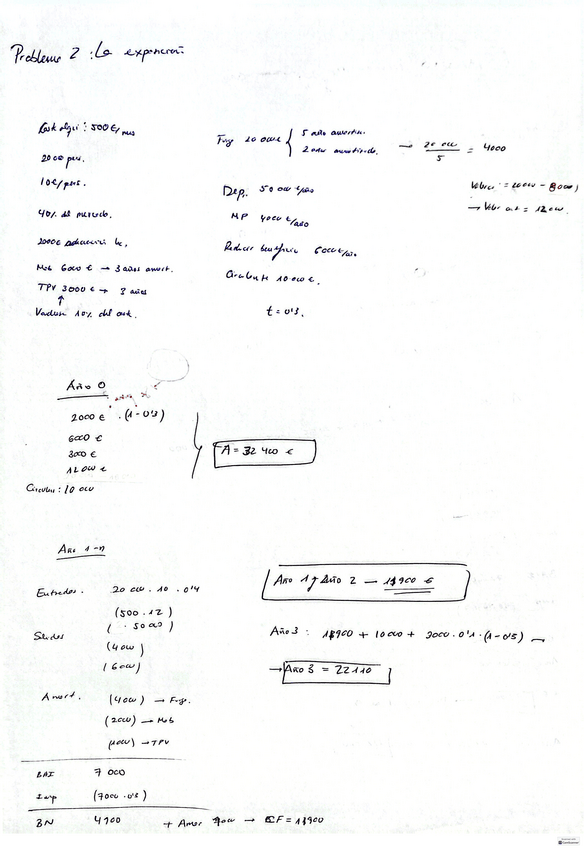 Problema 2 : La expansión
Cost alqui : 500 €/mes
20 000 pers.
10 €/pers.
40% del mercado.
2000€ adecuación
Mob 6000 € → 3 años amort.
TPV 3000 € → 3 años
↑
10% del
Furg 20 000 € { 5 años amortiz.
2 años amortizado.
→ 20 000 / 5 = 4000
= 20000 - 8000)
→ = 12000.
Dep. 50 000 €/año
MP 4000 €/año
Reducir beneficio 6000 €/año
Circulante 10 000 €.
t = 0'3.
Año 0
2000 € . (1-0'3)
6000 €
3000 €
12 000 €
Circulan : 10 000
A = 32 400 €
Año 1-n
Entradas. 20 000 . 10 . 0'4
(500 . 12)
Salidas ( . 50 000 )
(4000)
(6000)
Amort. (4000) → Furg.
(2000) → Mob
(1000) → TPV
BAI 7 000
Imp (7000 . 0'3)
BN 4900 + Amor 7000 → CF = 11900
Año 1 y Año 2 — 11900 €
Año 3 : 11900 + 10000 + 3000 . 0'1 . (1-0'3)
→ Año 3 = 22110